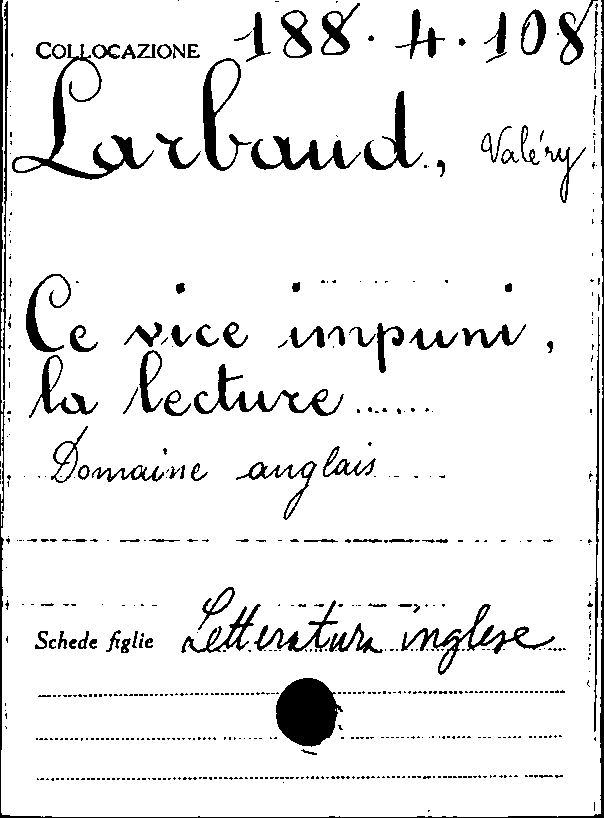 COLLOCAZIONE 188. 4. 108
Larbaud, Valéry
Ce vice impuni,
la lecture......
Domaine anglais
Schede figlie Letteratura inglese